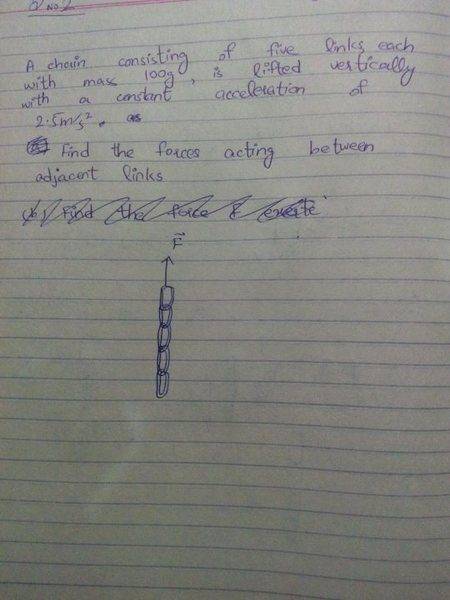 Q NO. 2
A chain consisting of five links each
with mass 100g, is lifted vertically
with a constant acceleration of
2.5m/s². as
Find the forces acting between
adjacent links
(b) Find the force F exerte
F